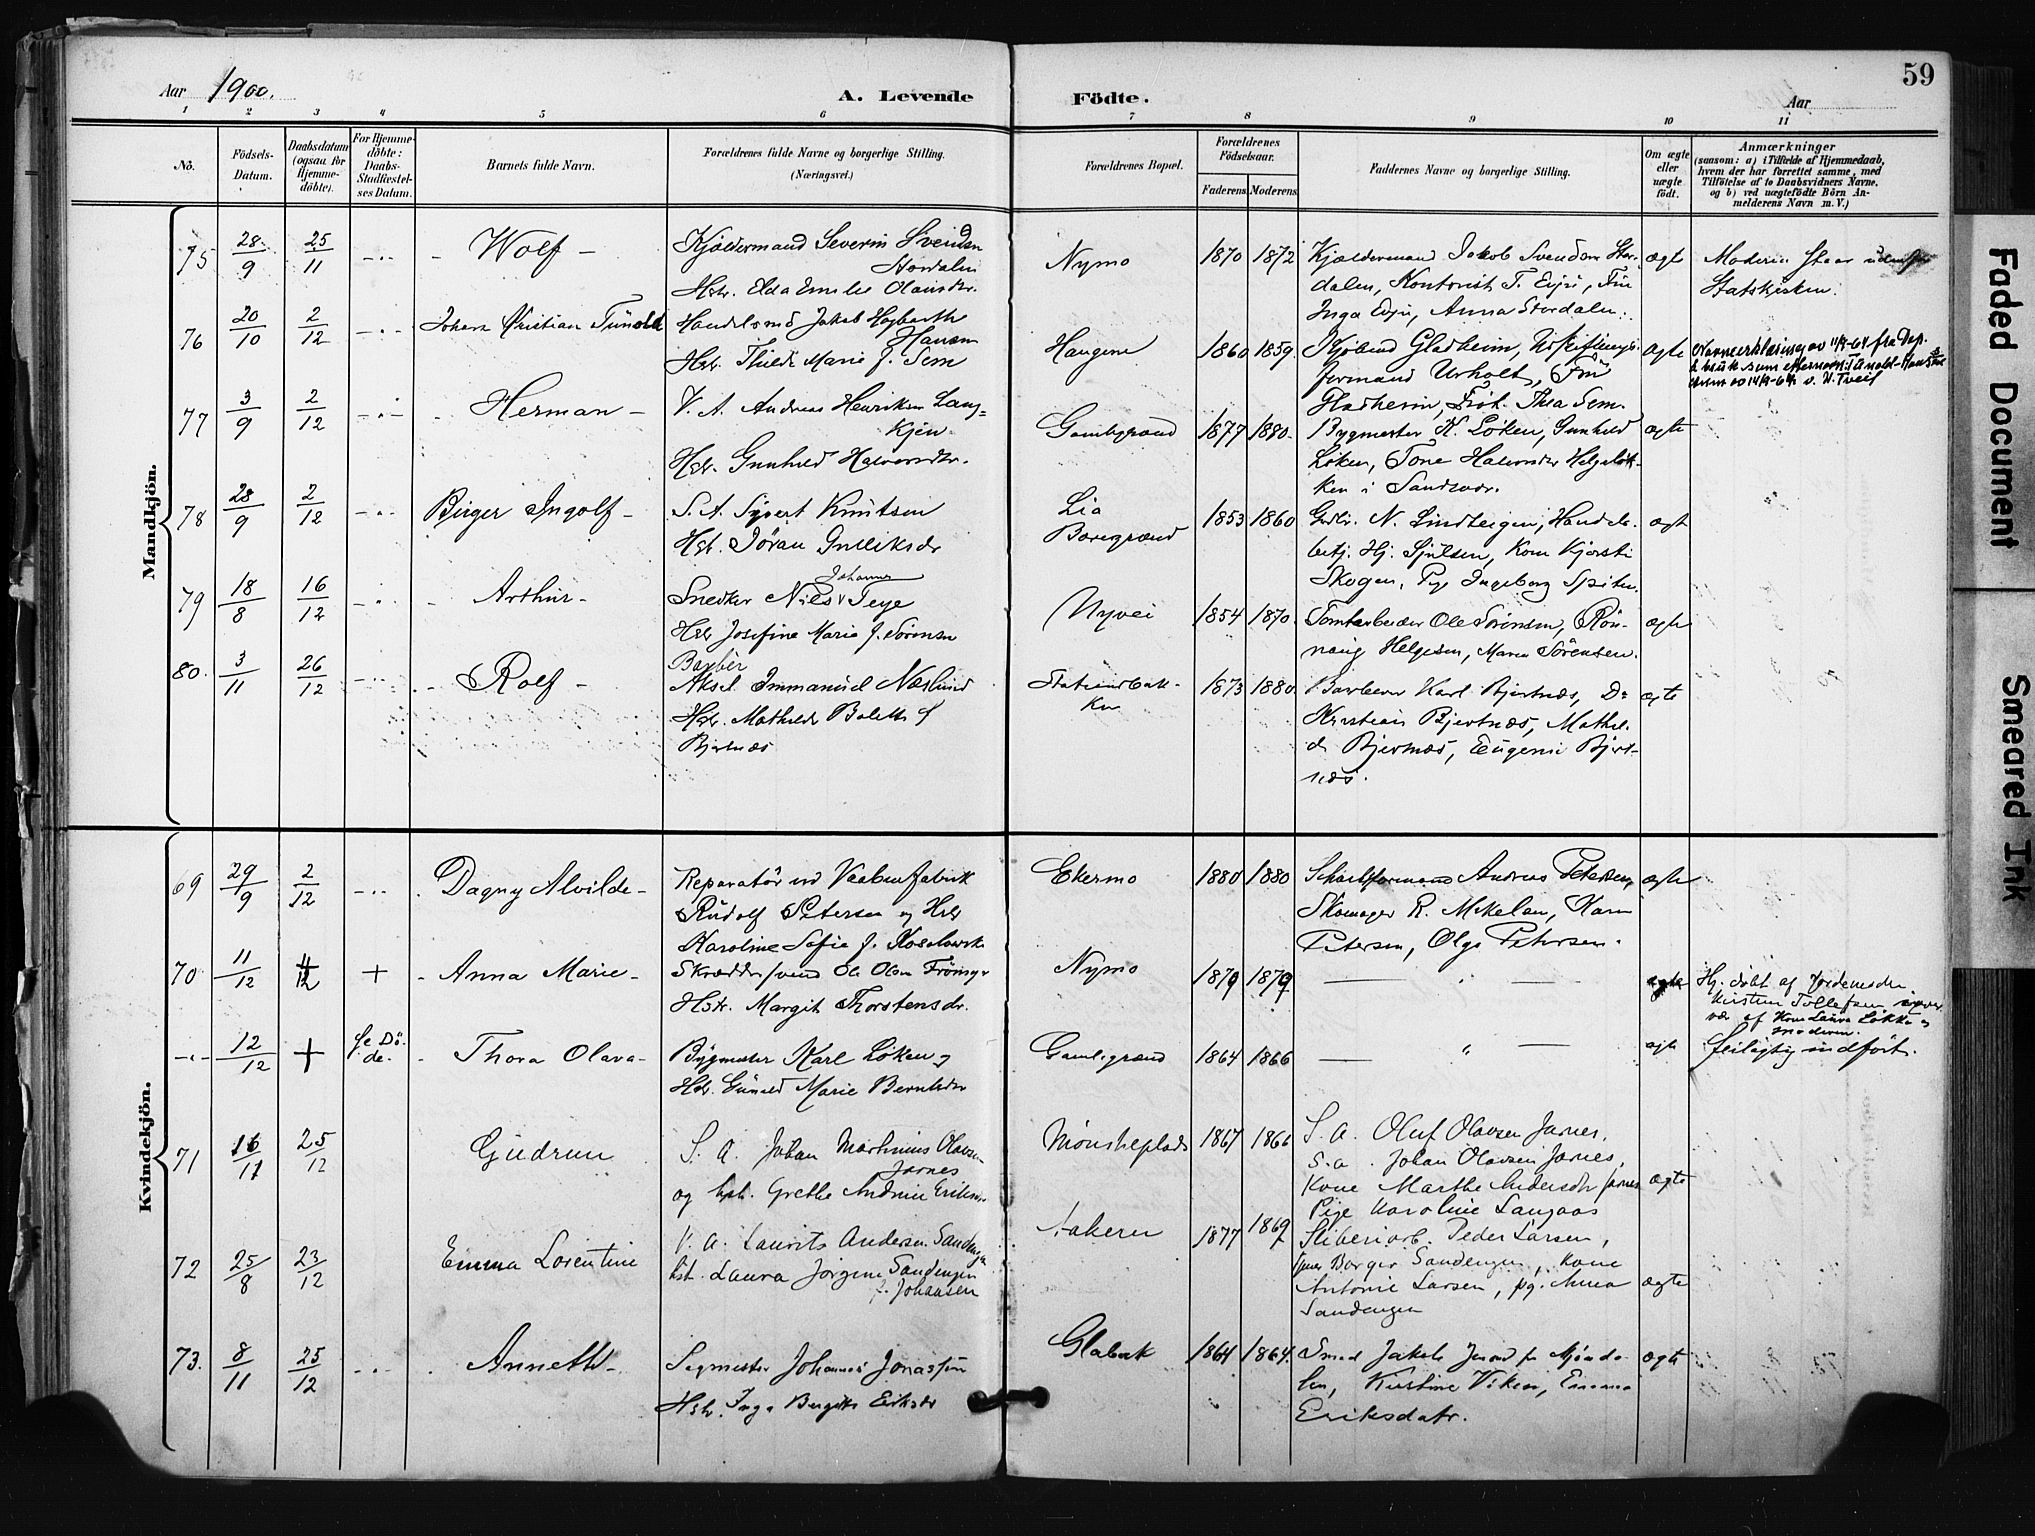 Aar 1900.
A. Levende Födte.
Aar
59
1 2 3 4 5 6 7 8 9 10 11
Nö.
Födsels-Datum.
Daabsdatum (ogsaa for Hjemme-döbte).
For Hjemme-döbte: Daabs-Stadfæstel-ses Datum.
Barnets fulde Navn.
Forældrenes fulde Navne og borgerlige Stilling. (Næringsvei.)
Forældrenes Bopæl.
Forældrenes Födselsaar.
Faderens Moderens
Faddernes Navne og borgerlige Stilling.
Om ægte eller uægte födt.
Anmærkninger
(saasom: a) i Tilfælde af Hjemmedaab,
hvem der har forrettet samme, med
Tilföielse af to Daabsvidners Navne,
og b) ved uægtefödte Börn An-
melderens Navn m. V.)
Mandkjön.
75 28/9 25/11 Wolf - Kjældermand Severin Svendsen
Stordalen
Hstr. Elda Emilie Olausdtr.
Nymo 1870 1872 Kjældermand Jakob Svendsen Stor-
dalen, Kontorist T. Evju, Frü
Inga Evju, Anna Stordalen.
ægte Moderen staar udenfor
Statskirken.
76 20/10 2/12 Johan Kristian Tünold Handelsmd Jakob Hagbarth
Hansen
Hstr. Thilde Marie f. Sem
Haugene 1860 1859. Kjöbmd Gladheim,
formand Urholt, Frü
Gladheim, Frök. Thea Sem.
ægte Navneerklæring av 11/9-64 fra Dep.
å bruk som efternavn: Tunold-Hanssen
v. N. Tveit
77 3/9 2/12 Herman - V. A. Andreas Henriksen Lang-
kjen
Hstr. Gunhild Halvorsdtr.
Gamlegrænd 1877 1880. Bygmester K. Löken, Gunhild
Löken, Tone Halvorsdtr Helgeløk-
ken i Sandsvær.
ægte
78 28/9 2/12 Birger Ingolf - S. A. Syvert Knutsen
Hstr. Jöran Gulliksdr
Lia
Bævergrænd
1853 1860 Gaardbr. N. Lindteigen, Handels-
betj. Hj. Sjulsen, Kone Kjersti
Skogen, Pige Ingeborg Spiten
ægte
79 18/8 16/12 Arthur - Snedker Niels Johannes Teye
Hstr Josefine Marie f. Sörensen
Nyvei 1854 1870. Tomtarbeider Ole Sörensen, Rön-
naug Helgesen, Maren Sörensen.
ægte
80. 3/11 26/12 Rolf - Barber
Aksel Immanuel Næslund
Hstr. Mathilde Bolette f
Bjertnæs
Stationsbak-
ken
1873 1880. Barberer Karl Bjertnæs, Do
Kristian Bjertnæs, Mathil-
de Bjertnæs, Eugenie Bjert-
næs.
ægte
Kvindekjön.
69 29/9 2/12 Dagny Alvilde - Reparatör ved Vaabenfabrik
Rudolf Petersen og Hstr
Karoline Sofie f. Koselowski
Ekermo 1880 1880 Andreas Petersen,
Skomager R. Mikelsen, Karen
Petersen, Olga Petersen.
ægte
70 11/12 + Anna Marie - Skræddersvend Ole Olsen Frönsye
Hstr. Margit Thorstensdr.
Nymo 1879 1879 ægte Hj. döbt af Jordemoder
Kirstine Tollefsen
vær af Kone Laura Løkka og
moderen.
12/12 + Se Dö-
de. Thora Olava - Bygmester Karl Löken og
Hstr. Gunild Marie Berntsdtr
Gamlegrænd 1864 1866 ægte feilagtig indfört.
71 16/11 25/12 Gudrun S. A. Johan Martinius Olavsen
Jarnes
og hst. Grethe Andrine Eriksen
Mönsheplads 1867 1866 S. A. Oluf Olavsen Jarnes,
S. a. Johan Olavsen Jarnes,
Kone Marthe Andersdtr Jarnes
Pige Karoline Langaas
ægte
72 25/8 23/12 Emma Lorentine V. A. Laurits Andersen Sandengen
hst. Laura Jorgine Sandengen
f. Johansen
Aakeren 1877 1869 Sliberiarb. Peder Larsen,
Borger Sandengen, Kone
Antonie Larsen, pg. Anna
Sandengen
ægte
73. 8/11 25/12 Annette - Sagmester Johannes Jonassen
Hstr. Inga Birgitte Eriksdr
Glabak 1864 1864. Smed Jakob fr Mjönda-
len, Kirstine Viken, Emma
Eriksdatr.
ægte
Faded Document
Smeared Ink